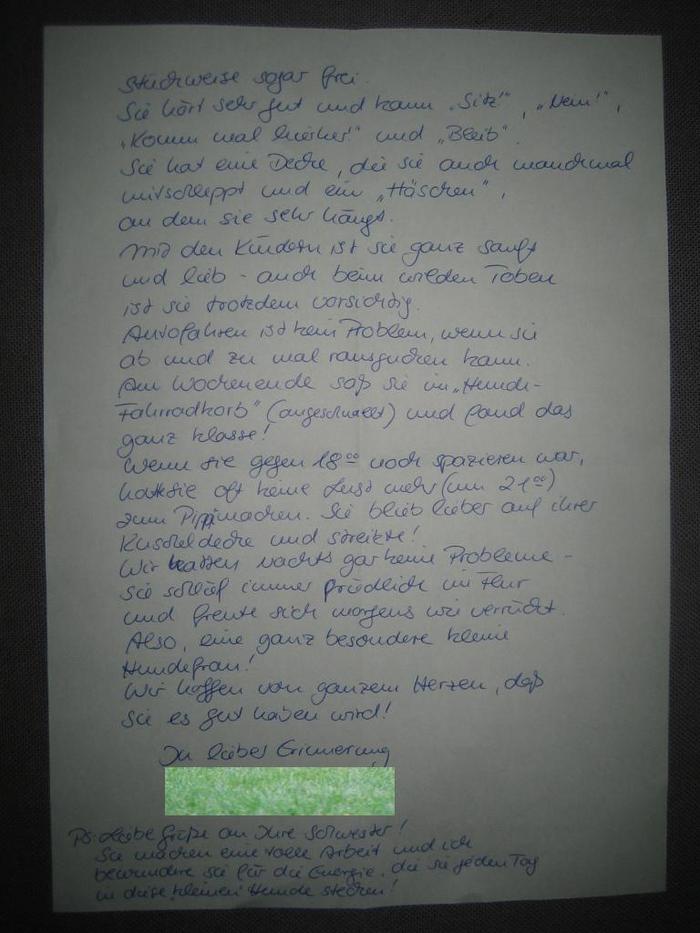 stückweise sogar frei.
Sie hört sehr gut und kann „Sitz“, „Nein!“,
„Komm mal hierher!“ und „Bleib“.
Sie hat eine Decke, die sie auch manchmal
mitschleppt und ein „Häschen“,
an dem sie sehr hängt.
Mit den Kindern ist sie ganz sanft
und lieb - auch beim wilden Toben
ist sie trotzdem vorsichtig.
Autofahren ist kein Problem, wenn sie
ab und zu mal rausgucken kann.
Am Wochenende saß sie im „Hunde-
Fahrradkorb“ (angeschnallt) und fand das
ganz klasse!
Wenn sie gegen 18⁰⁰ noch spazieren war,
hatte sie oft keine Lust mehr (um 21⁰⁰)
zum Pippimachen. Sie blieb lieber auf ihrer
Kuscheldecke und streikte!
Wir hatten nachts gar keine Probleme -
sie schlief immer friedlich im Flur
und freute sich morgens wie verrückt.
Also, eine ganz besondere kleine
Hundefrau!
Wir hoffen von ganzem Herzen, daß
sie es gut haben wird!
In lieber Erinnerung
PS: Liebe Grüße an Ihre Schwester!
Sie machen eine tolle Arbeit und ich
bewundere sie für die Energie, die sie jeden Tag
in diese kleinen Hunde stecken!